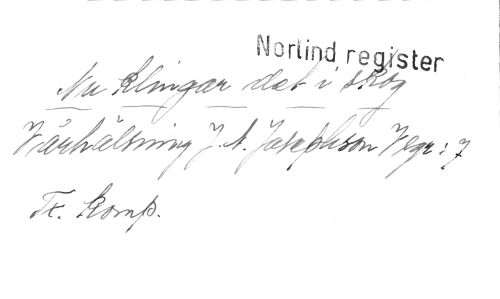 Norlind, register
Nu klingar det i skog
Vårhälsning J. A. Josephson Vegr: 7
Tx. komp.